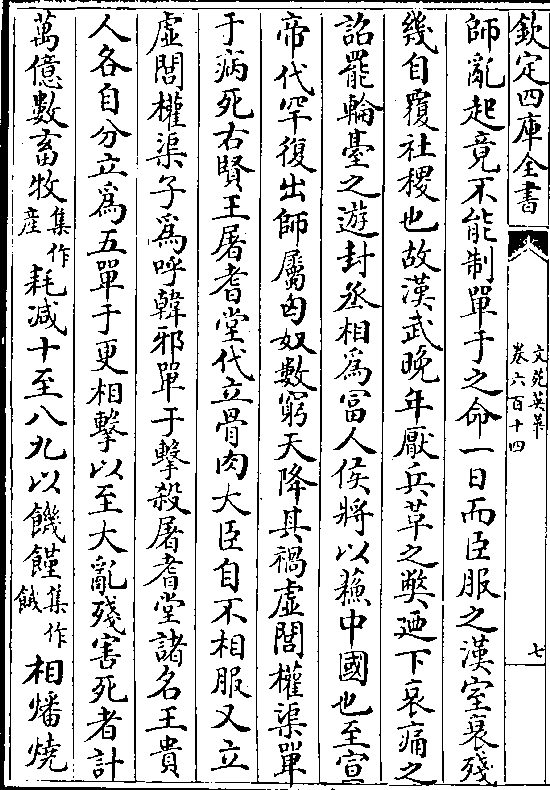 欽定四庫全書
文苑英華
卷六百十四
七
師亂起竟不能制單于之命一日而臣服之漢室衰殘
幾自覆社稷也故漢武晚年厭兵革之獘廼下哀痛之
詔罷輪䑓之遊封丞相為冨人侯將以蘇中國也至宣
帝代罕復出師屬匈奴數窮天降其禍虚閭權渠單
于病死右賢王屠耆堂代立骨肉大臣自不相服又立
虚閭權渠子為呼韓邪單于擊殺屠耆堂諸名王貴
人各自分立為五單于更相擊以至大亂殘害死者計
萬億數畜牧集作産耗減十至八九以饑饉集作餓相燔燒